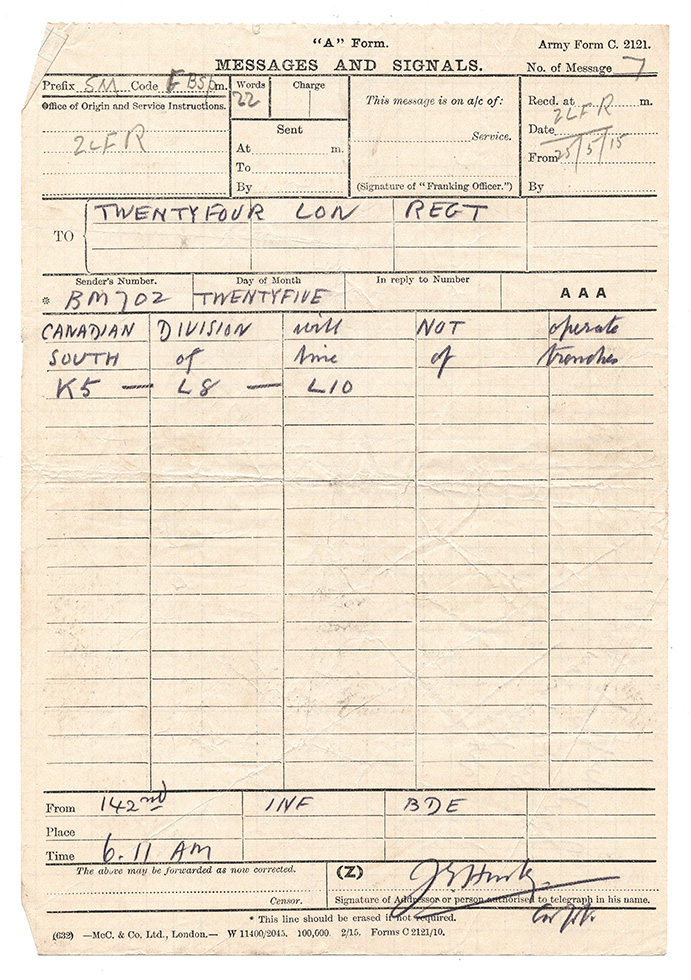 "A" Form.
Army Form C. 2121.
MESSAGES AND SIGNALS.
No. of Message 7
Prefix SM Code m.
Words
22
Charge
This message is on a/c of:
Recd. at m.
2LFR
Office of Origin and Service Instructions.
2LFR
Sent
At m.
To
By
Service.
(Signature of "Franking Officer.")
Date
From 25/5/15
By
TO
TWENTYFOUR LON REGT
Sender's Number.
Day of Month
In reply to Number
AAA
* BM702
TWENTYFIVE
CANADIAN DIVISION will NOT operate
SOUTH of line of trenches
K5 — L8 — L10
From 142nd INF BDE
Place
Time 6.11 AM
The above may be forwarded as now corrected.
(Z)
Censor.
Signature of Addressor or person authorised to telegraph in his name.
* This line should be erased if not required.
(632) —McC. & Co. Ltd., London.— W 11400/2045. 100,000. 2/15. Forms C 2121/10.